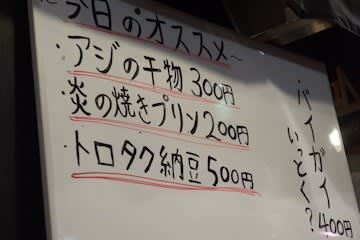 今日のオススメ～
・アジの干物300円
・炎の焼きプリン200円
・トロタク納豆500円
・バイガイ
いっとく?
400円